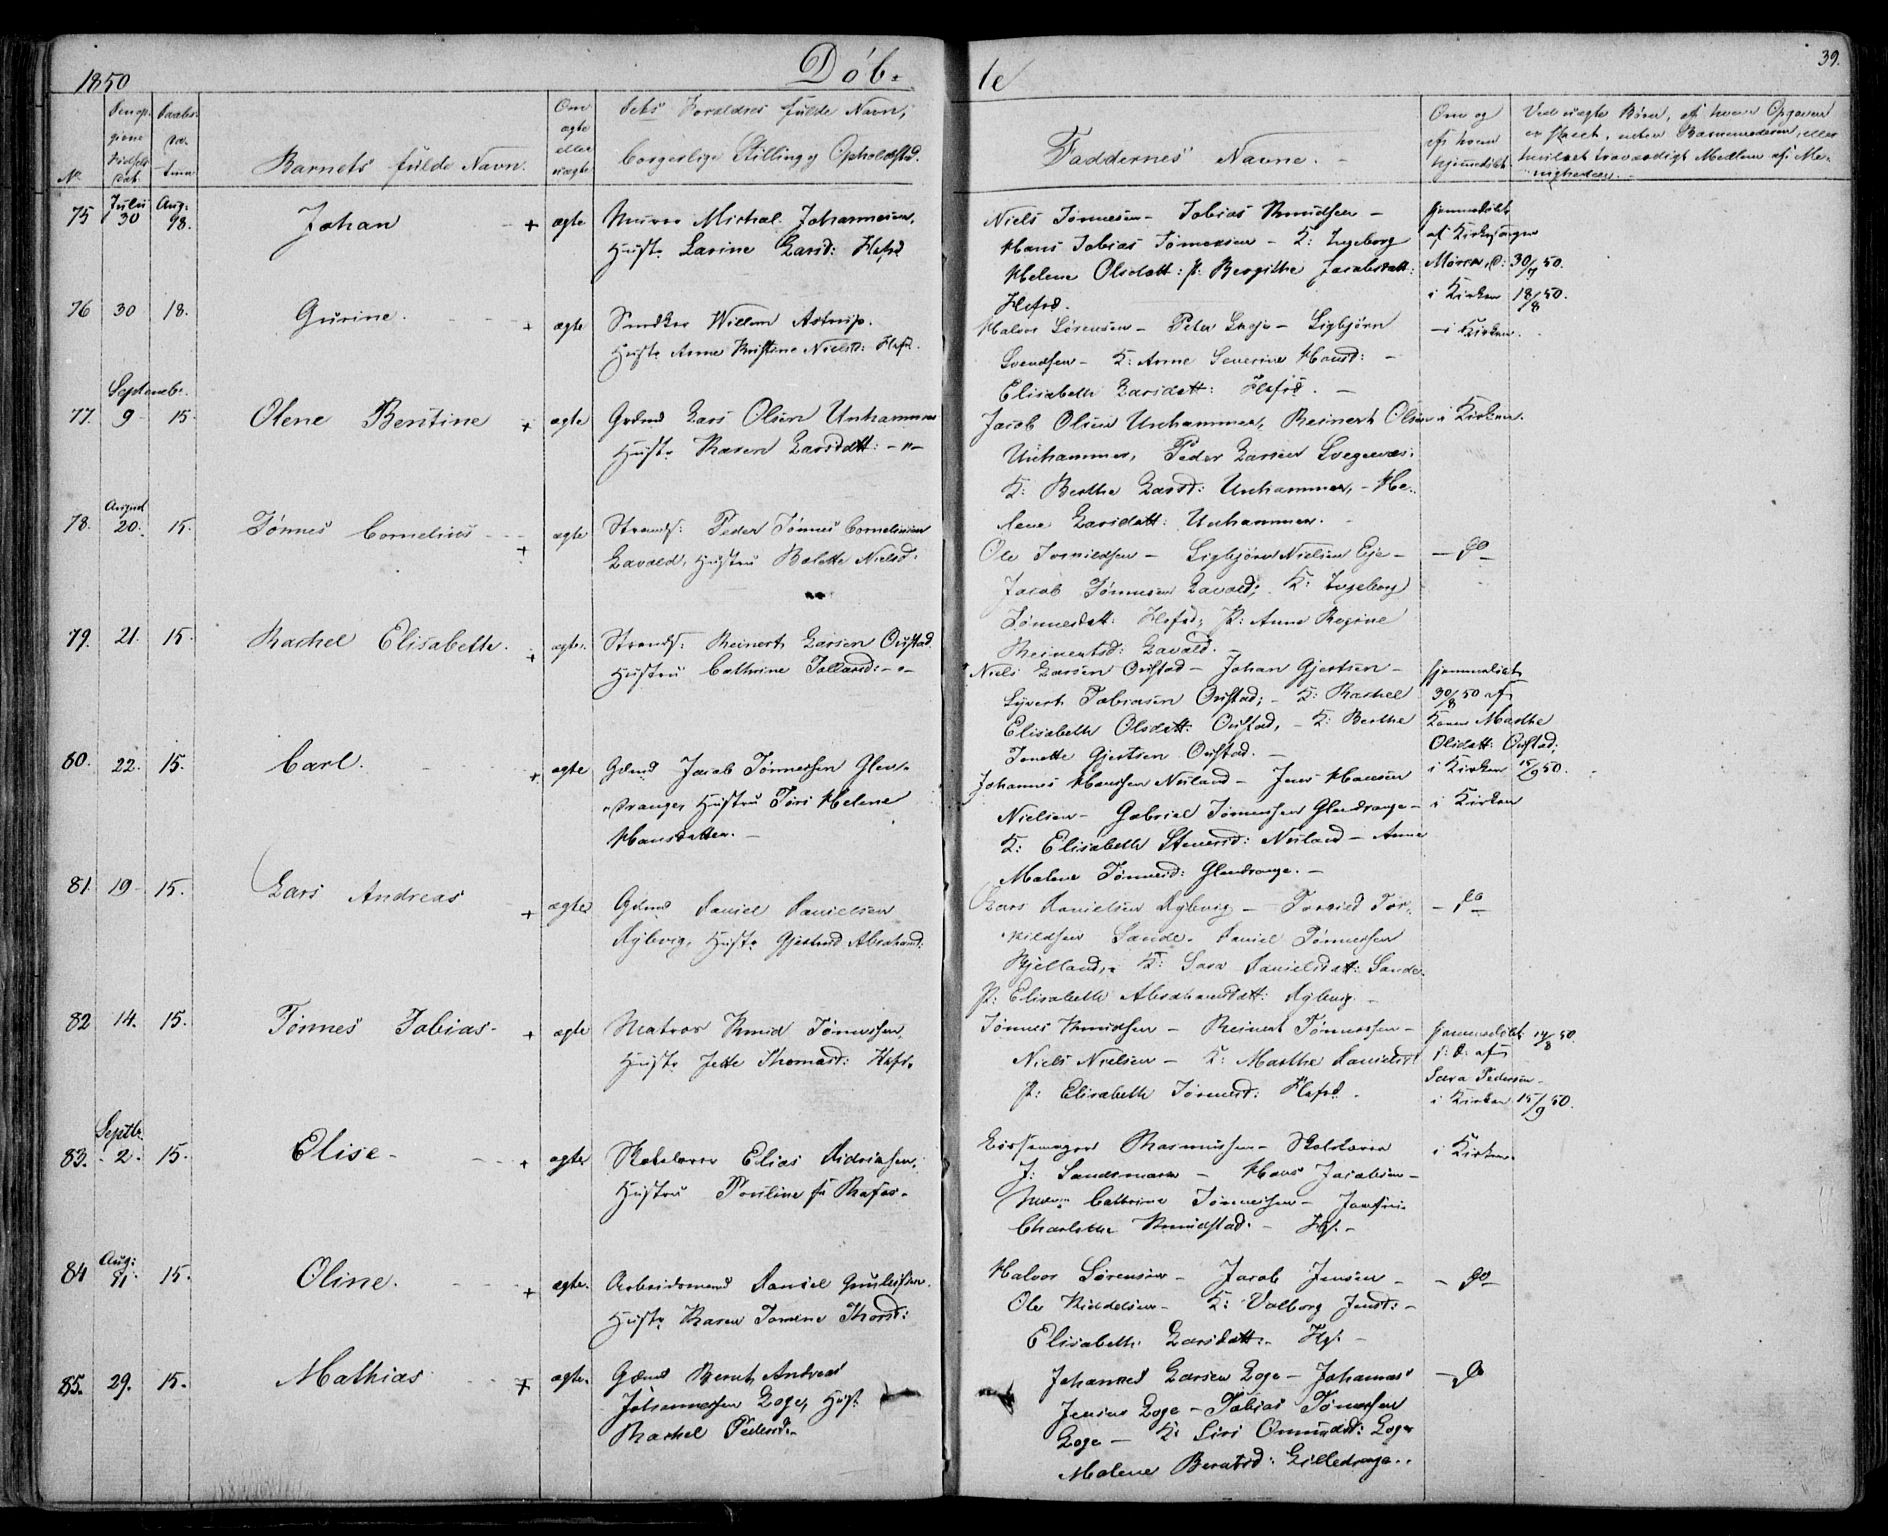 1850
Døb-
te
39.
No
Barnets fulde Navn.
Om ægte eller uægte
Dets Forældres fulde Navn,
borgerlige Stilling og Opholdsted.
Faddernes Navne. -
Om og af hvem hjemmedøbt
Ved uægte Børn, af hvem Opgaven
er skeet, enten Barnemoderen, eller
hvilket troværdigt Medlem af Me-
nigheden. -
75 Juli 30 Aug: 18. Johan + ægte
Murer Michal Johannesen,
Hustr. Larsd: Flefd
Niels Tønnesen - Tobias Knudsen -
Hans Tobias Tønnesen - K: Ingeborg
Helene Olsdatt: P: Bergithe Jacobsdatt:
Flefd.
hjemmedøbt
af Kirkesanger
30/7 50.
i Kirken 18/8 50.
76 30 18. Gurine. + ægte
Snedker Willem Astrup.
Hustr Anne Kristine Nielsd: Flefd.
Halvor Sørensen - Peter - Sigbjørn
Svendsen - K: Anne Severine Hansd: -
Elisabeth Larsdatt: Flefd. -
- i Kirken.
77. September 9 15. Olene Bentine + ægte
Grdmd Lars Olsen Unhammer
Hustr Karen Larsdatt: - " -
Jacob Olsen Unhammer, Reinert Olsen
Unhammer, Peder Larsen
K: Berthe Larsd: Unhammer, - He-
lene Larsdatt: Unhammer. -
i Kirken.
78. August 20. 15. Tønnes Cornelius - + ægte
Strands: Peder Tønnes Corneliusen
Lavold, Hustru Bolette Nielsd:
Ole - Sigbjørn Nielsen Eje -
Jacob Tønnesen Lavold; K: Ingeborg
Tønnesdatt: Flefd; P: Anne Regine
Reinertsd: Lavold. -
- do -
79. 21. 15. Rachel Elisabeth. + ægte.
Strands: Reinert Larsen Oustad
Hustru Cathrine Tollavsd: - " -
Niels Larsen Oustad - Johan Gjertsen -
Syvert Tobiasen Oustad; - K: Rachel
Elisabeth Olsdatt: Oustad, - K: Berthe
Jonette Gjertsen Oustad. -
hjemmedøbt
30/8 50 af
Konen Marthe
Olsdatt: Oustad;
i Kirken 15/9 50.
80. 22. 15. Carl. + ægte
Gdmd Jacob Tønnessen Glen-
drange, Hustru Tori Helene
Hansdatter. -
Johannes Hanssen Nuland - Jens Hansen
Nielsen - Gabriel Tønnessen Glendrange -
K: Elisabeth Steensd: Nuland - Anne
Malene Tønnesd: Glendrange. -
i Kirken
81. 19 - 15. Lars Andreas + ægte
Gdmd Daniel Danielsen
Hustr Gjertrud Abrahamd:
Lars Danielsen - Torkild Tor-
kildsen Sande. Daniel Tønnessen
Kjelland, - K: Sara Danielsdatt: Sande.
P: Elisabeth Abrahamsdatt: -
- do -
82 14. 15. Tønnes Tobias - + ægte
Matros Knud Tønnessen,
Hustr Jette Thomasd: Flefd.
Tønnes Knudsen - Reinert Tønnessen -
Niels Nielsen - K: Marthe Danielsd:
P: Elisabeth Tønnesd: Flefd.
hjemmedøbt 14/8 50.
af
Sara Pedersen -
i Kirken 15/9 50.
83. Septbr. 2. 15. Elise - + ægte
Skolelærer Elias Didriksen,
Hustru Pouline
Rasmussen - Skolelærer
J: Sandsmark - Hans Jacobsen -
Cathrine Tønnessen -
Charlotte Knudstad. -
i Kirken.
84 Aug: 11. 15. Oline. + ægte.
Arbeidsmand Daniel Gunleifsen.
Hustr Karen Tomine Thorsd:
Halvor Sørensen - Jacob Jensen -
Ole - K: Valborg Jensd: -
Elisabeth Larsdatt. -
- do -
85. 29. 15. Mathias + ægte.
Gdmd Bernt Andreas
Johannessen Loge, Hust:
Rachel Pedersd. -
Johannes Larsen Loge - Johannes
Jensen Loge - Tobias Tønnessen
Loge - K: Siri Omundsd: Loge
Malene Berntsd: -
- do